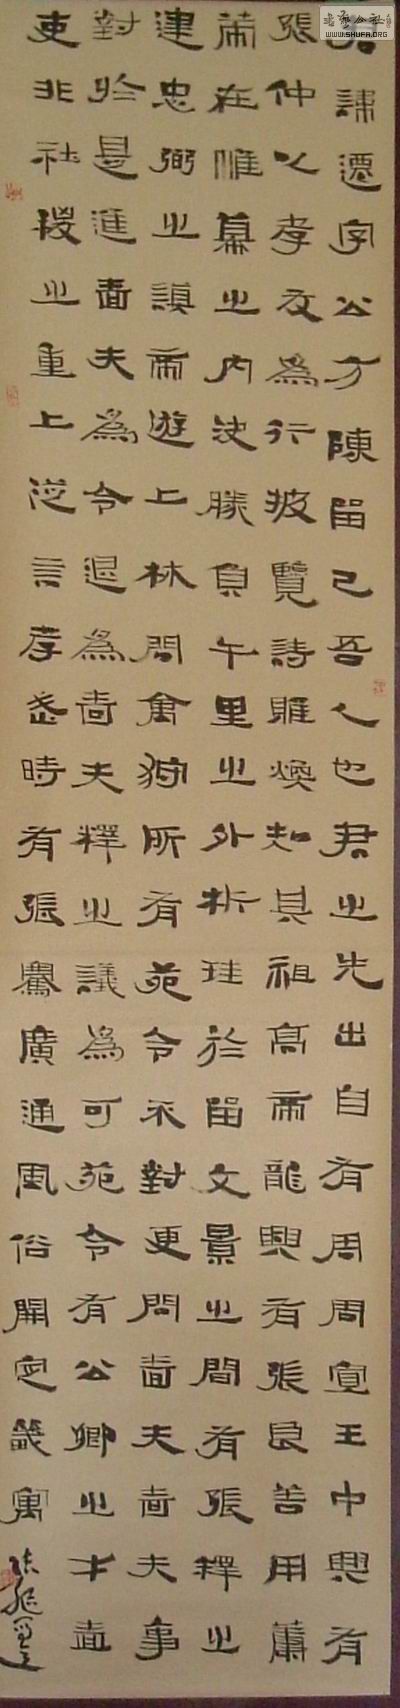 君諱遷字公方陳留己吾人也君之先出自有周周宣王中興有
張仲以孝友為行披覽詩雅煥知其祖高帝龍興有張良善用籌
策在帷幕之內決勝負千里之外析珪於留文景之間有張釋之
建忠弼之謨帝遊上林問禽狩所有苑令不對更問嗇夫嗇夫事
對於是進嗇夫為令退為嗇夫釋之議為可苑令有公卿之才嗇
吏非社稷之重上從言孝武時有張騫廣通風俗開定畿寓
書藝公社
WWW.SHUFA.ORG